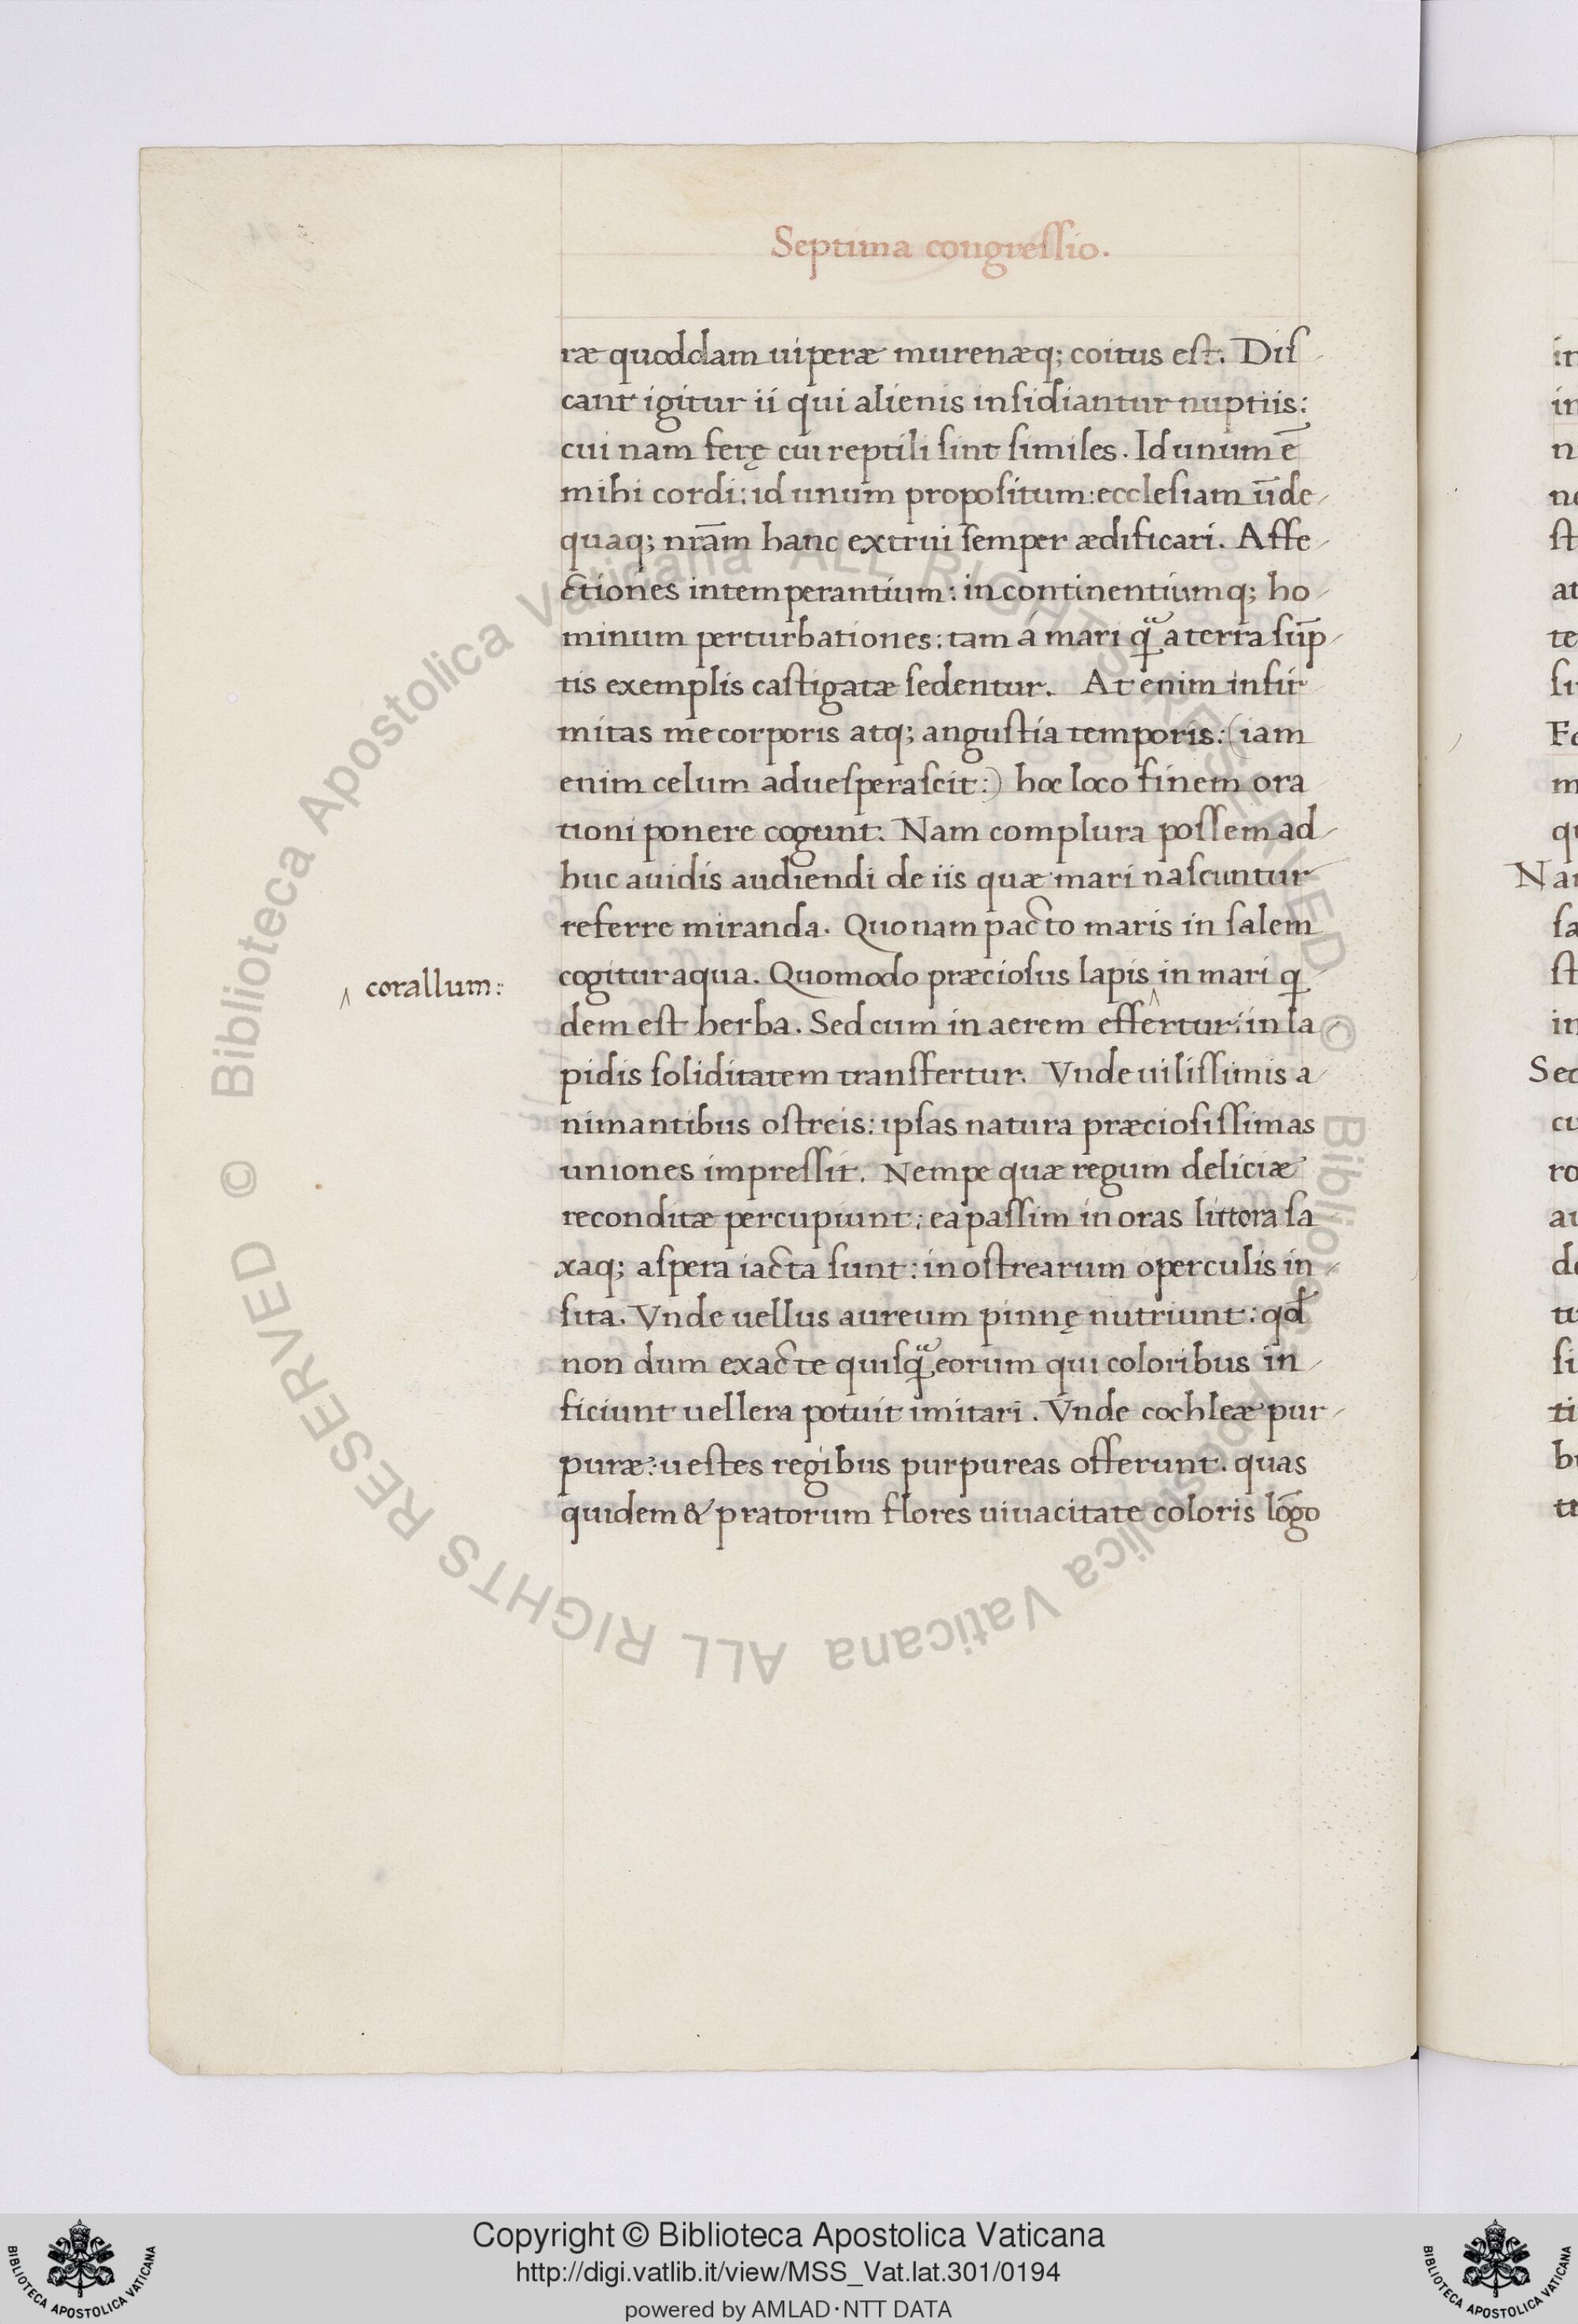 Septima congreſſio.
ræ quoddam uiperæ murenæq; coitus eſt. Diſ
cant igitur ii qui alienis inſidiantur nuptiis:
cui nam ferę cui reptili ſint ſimiles. Id unum ē
mihi cordi: id unum propoſitum: eccleſiam ūde
quaq; nr̄am hanc extrui ſemper ædificari. Affe
ctiones intemperantium: incontinentiumq; ho
minum perturbationes: tam á mari qᷓ a terra ſūp
tis exemplis caſtigatæ ſedentur. At enim infir
mitas me corporis atq; anguſtia temporis: (iam
enim celum adueſperaſcit:) hoc loco finem ora
tioni ponere cogunt. Nam complura poſſem ad
huc auidis audiendi de iis quæ mari naſcuntur
referre miranda. Quonam pacto maris in ſalem
cogitur aqua. Quomodo præcioſus lapis ‸ in mari q
‸ corallum:
dem eſt herba. Sed cum in aerem effertur: in la
pidis ſoliditatem tranſfertur. Vnde uiliſſimis a
nimantibus oſtreis: ipſas natura præcioſiſſimas
uniones impreſſit. Nempe quæ regum deliciæ
reconditæ percupiunt: ea paſſim in oras littora ſa
xaq; aſpera iacta ſunt: in oſtrearum operculis in
ſita. Vnde uellus aureum pinnę nutriunt: qd̄
non dum exacte quiſqᷓ eorum qui coloribus in
ficiunt uellera potuit imitari. Vnde cochleæ pur
puræ: ueſtes regibus purpureas offerunt. quas
quidem & pratorum flores uiuacitate coloris lōgo
Nar
Sec
Copyright © Biblioteca Apostolica Vaticana
http://digi.vatlib.it/view/MSS_Vat.lat.301/0194
powered by AMLAD·NTT DATA
BIBLIOTECA APOSTOLICA VATICANA
BIBLIOTECA APOSTOLICA VATICANA
© Biblioteca Apostolica Vaticana ALL RIGHTS RESERVED
© Biblioteca Apostolica Vaticana ALL RIGHTS RESERVED